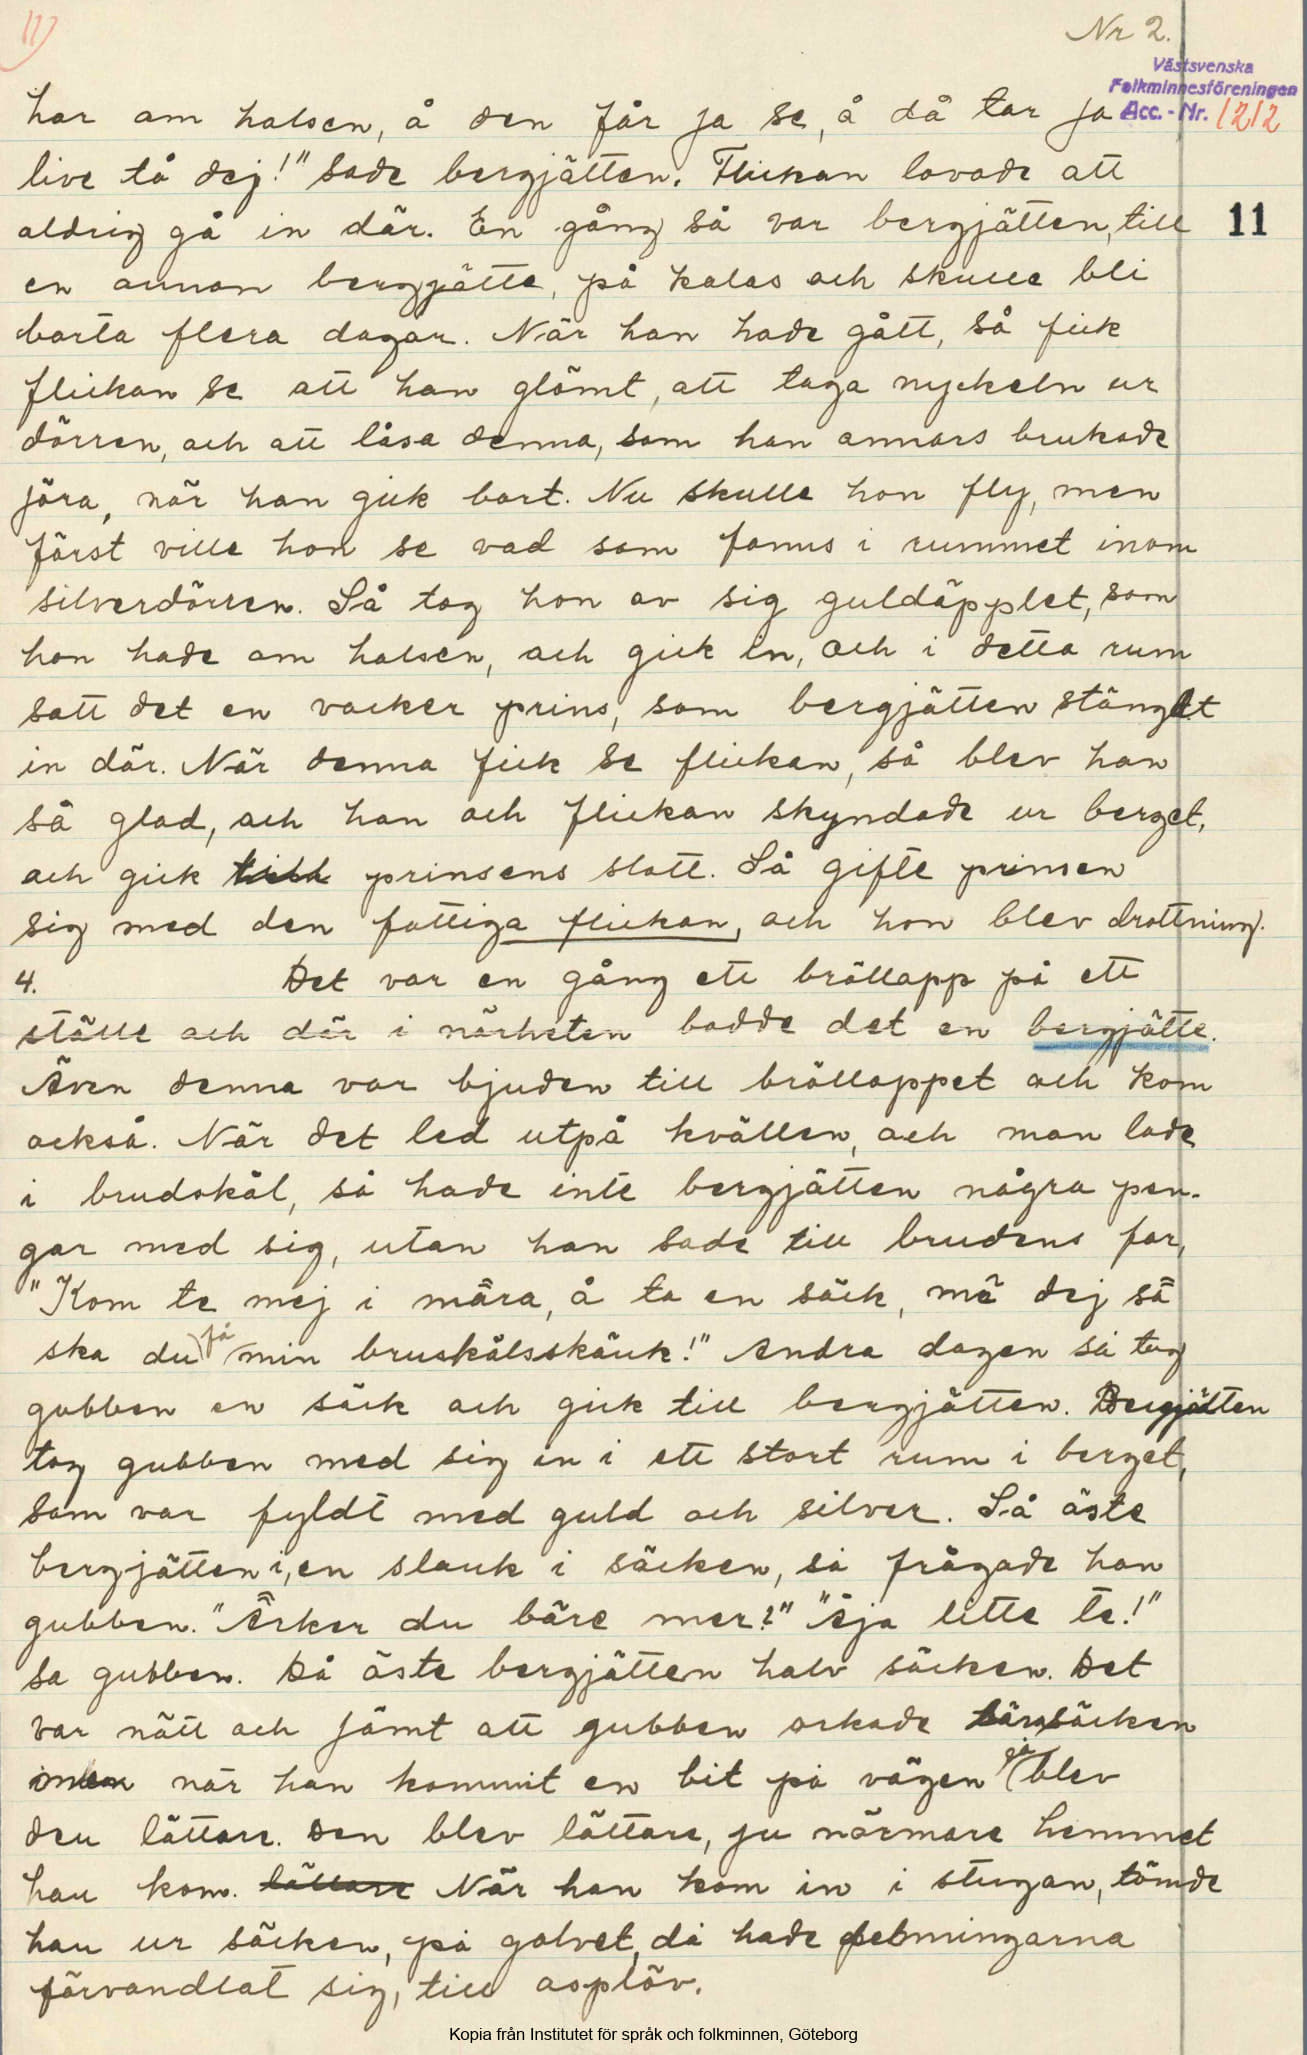 11)
Nr 2.
Västsvenska
Folkminnesföreningen
Acc.-Nr. 1212
har om halsen, å den får ja se, å då tar ja
live tå dej!" sade bergjätten. Flickan lovade att
aldrig gå in där. En gång så var bergjätten, till
11
en annan bergjätte, på kalas och skulle bli
borta flera dagar. När han hade gått, så fick
flickan se att han glömt, att taga nyckeln ur
dörren, och att låsa denna, som han annars brukade
jöra, när han gick bort. Nu skulle hon fly, men
först ville hon se vad som fanns i rummet inom
silverdörren. Så tog hon av sig guldäpplet, som
hon hade om halsen, och gick in, och i detta rum
satt det en vacker prins, som bergjätten stängt
in där. När denna fick se flickan, så blev han
så glad, och han och flickan skyndade ur berget,
och gick till prinsens slott. Så gifte prinsen
sig med den fattiga flickan, och hon blev drottning.
4. Det var en gång ett bröllopp på ett
ställe och där i närheten bodde det en bergjätte.
Även denna var bjuden till brölloppet och kom
också. När det led utpå kvällen, och man lade
i brudskål, så hade inte bergjätten några pen-
gar med sig, utan han sade till brudens far,
"Kom te mej i måra, å ta en säck, mä dej så
ska du få min bruskålsskänk!" Andra dagen så tog
gubben en säck och gick till bergjätten. Bergjätten
tog gubben med sig in i ett stort rum i berget,
som var fyldt med guld och silver. Så öste
bergjätten i, en slank i säcken, så frågade han
gubben. "Ärker du bäre mer?" "Äja litte te!"
sa gubben. Då öste bergjätten halv säcken. Det
var nätt och jämt att gubben orkade bära säcken
men när han kommit en bit på vägen så blev
den lättare. Den blev lättare, ju närmare hemmet
han kom. lättare När han kom in i stugan, tömde
han ur säcken, på golvet, då hade penningarna
förvandlat sig, till asplöv.
Kopia från Institutet för språk och folkminnen, Göteborg